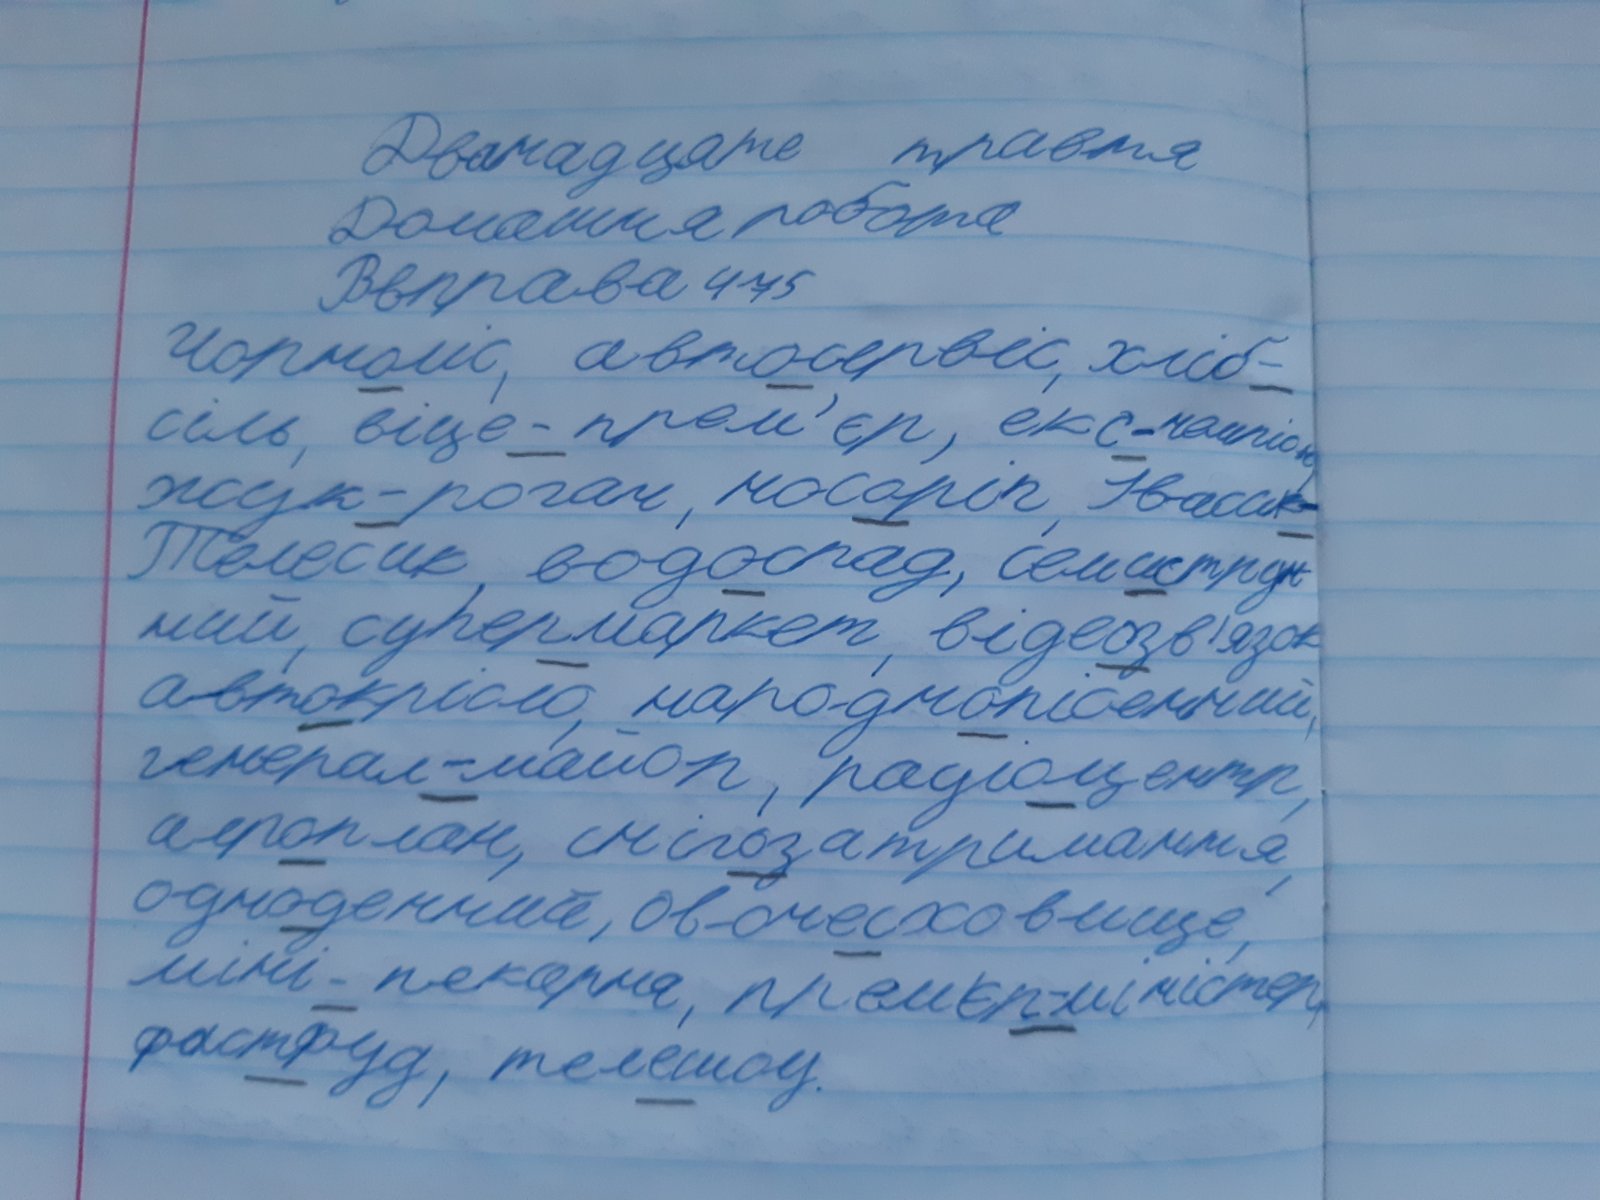 Дванадцяте травня
Домашня робота
Вправа 475
Чорноліс, автосервіс, хліб-
сіль, віце-прем'єр, екс-чемпіон,
жук-рогач, носоріг, Івасик-
Телесик, водоспад, семиструн
ний, супермаркет, відеозв'язок
автокрісло, народнопісенний,
генерал-майор, радіоцентр,
аероплан, снігозатримання,
одноденний, овочесховище,
міні-пекарня, премєр-міністер,
фастфуд, телешоу.